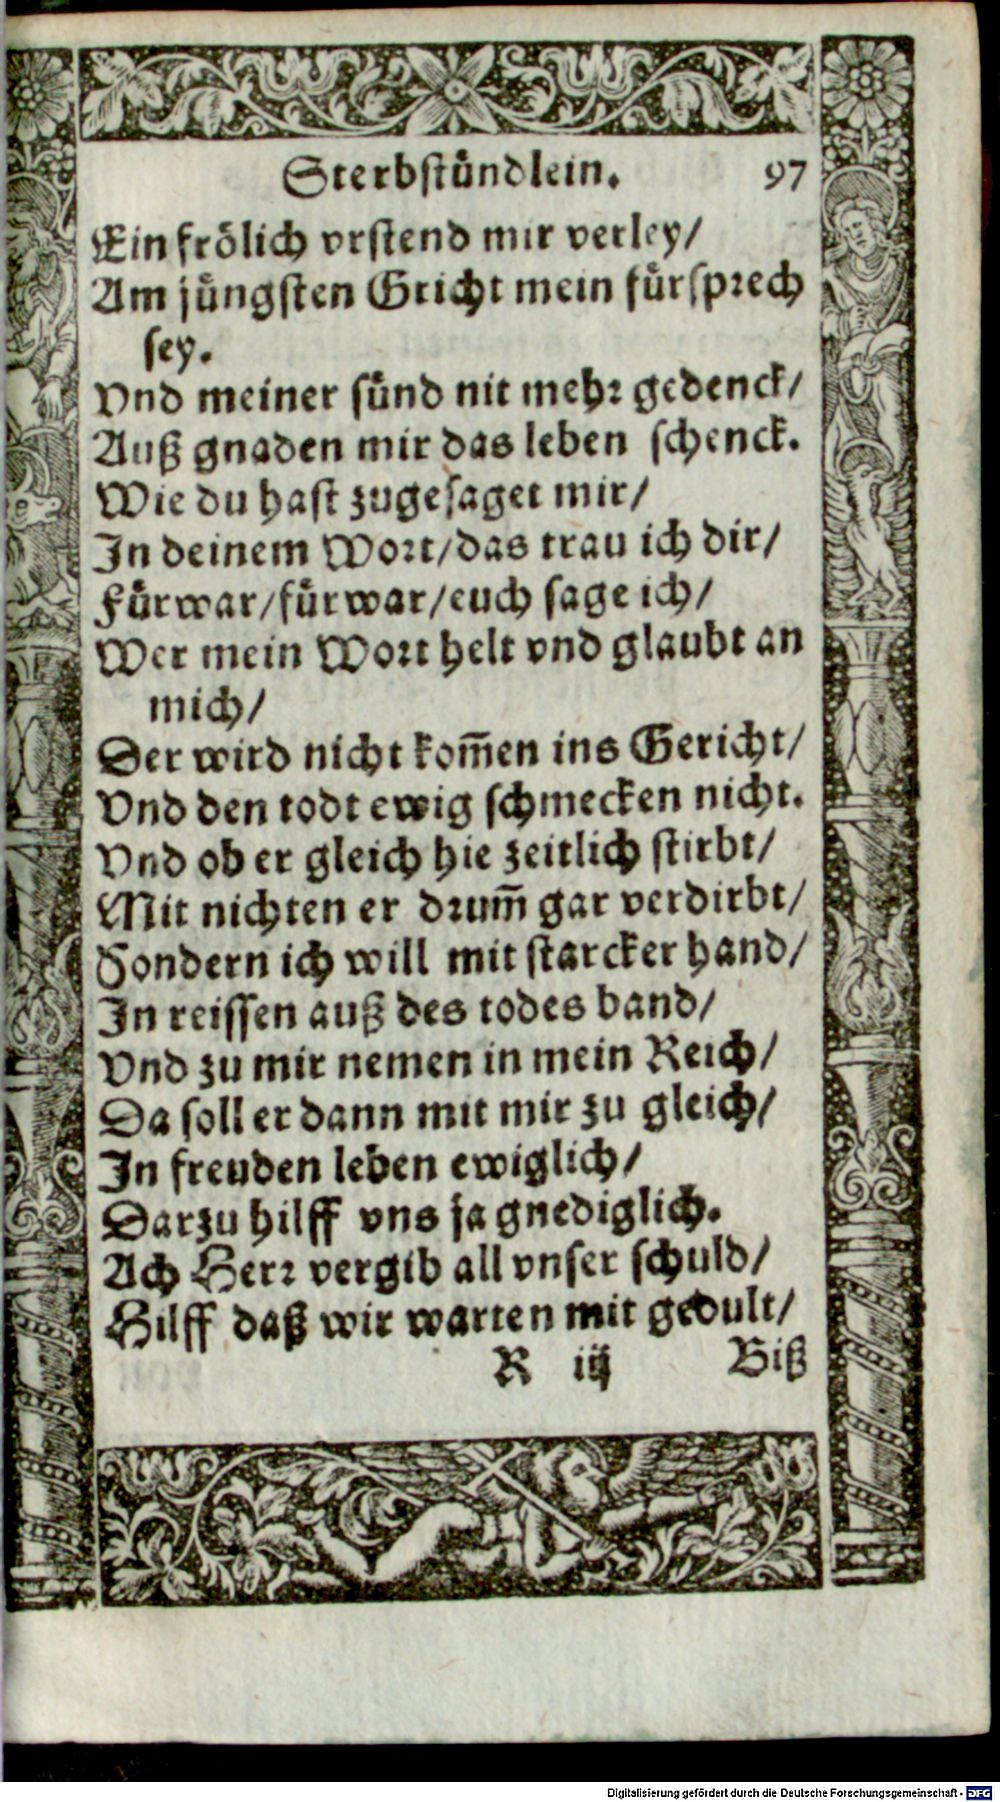 Sterbstuͤndlein. 97
Ein froͤlich vrstend mir verley/
Am juͤngsten Gericht mein fuͤrsprech
sey.
Vnd meiner suͤnd nit mehr gedenck/
Auß gnaden mir das leben schenck.
Wie du hast zugesaget mir/
In deinem Wort/das trau ich dir/
Fuͤrwar/fuͤrwar/euch sage ich/
Wer mein Wort helt vnd glaubt an
mich/
Der wird nicht kom̄en ins Gericht/
Vnd den todt ewig schmecken nicht.
Vnd ob er gleich hie zeitlich stirbt/
Mit nichten er drum̄ gar verdirbt/
Sondern ich will mit starcker hand/
In reissen auß des todes band/
Vnd zu mir nemen in mein Reich/
Da soll er dann mit mir zu gleich/
In freuden leben ewiglich/
Darzu hilff vns ja gnediglich.
Ach Herr vergib all vnser schuld/
Hilff daß wir warten mit gedult/
R iij Biß
Digitalisierung gefördert durch die Deutsche Forschungsgemeinschaft - DFG